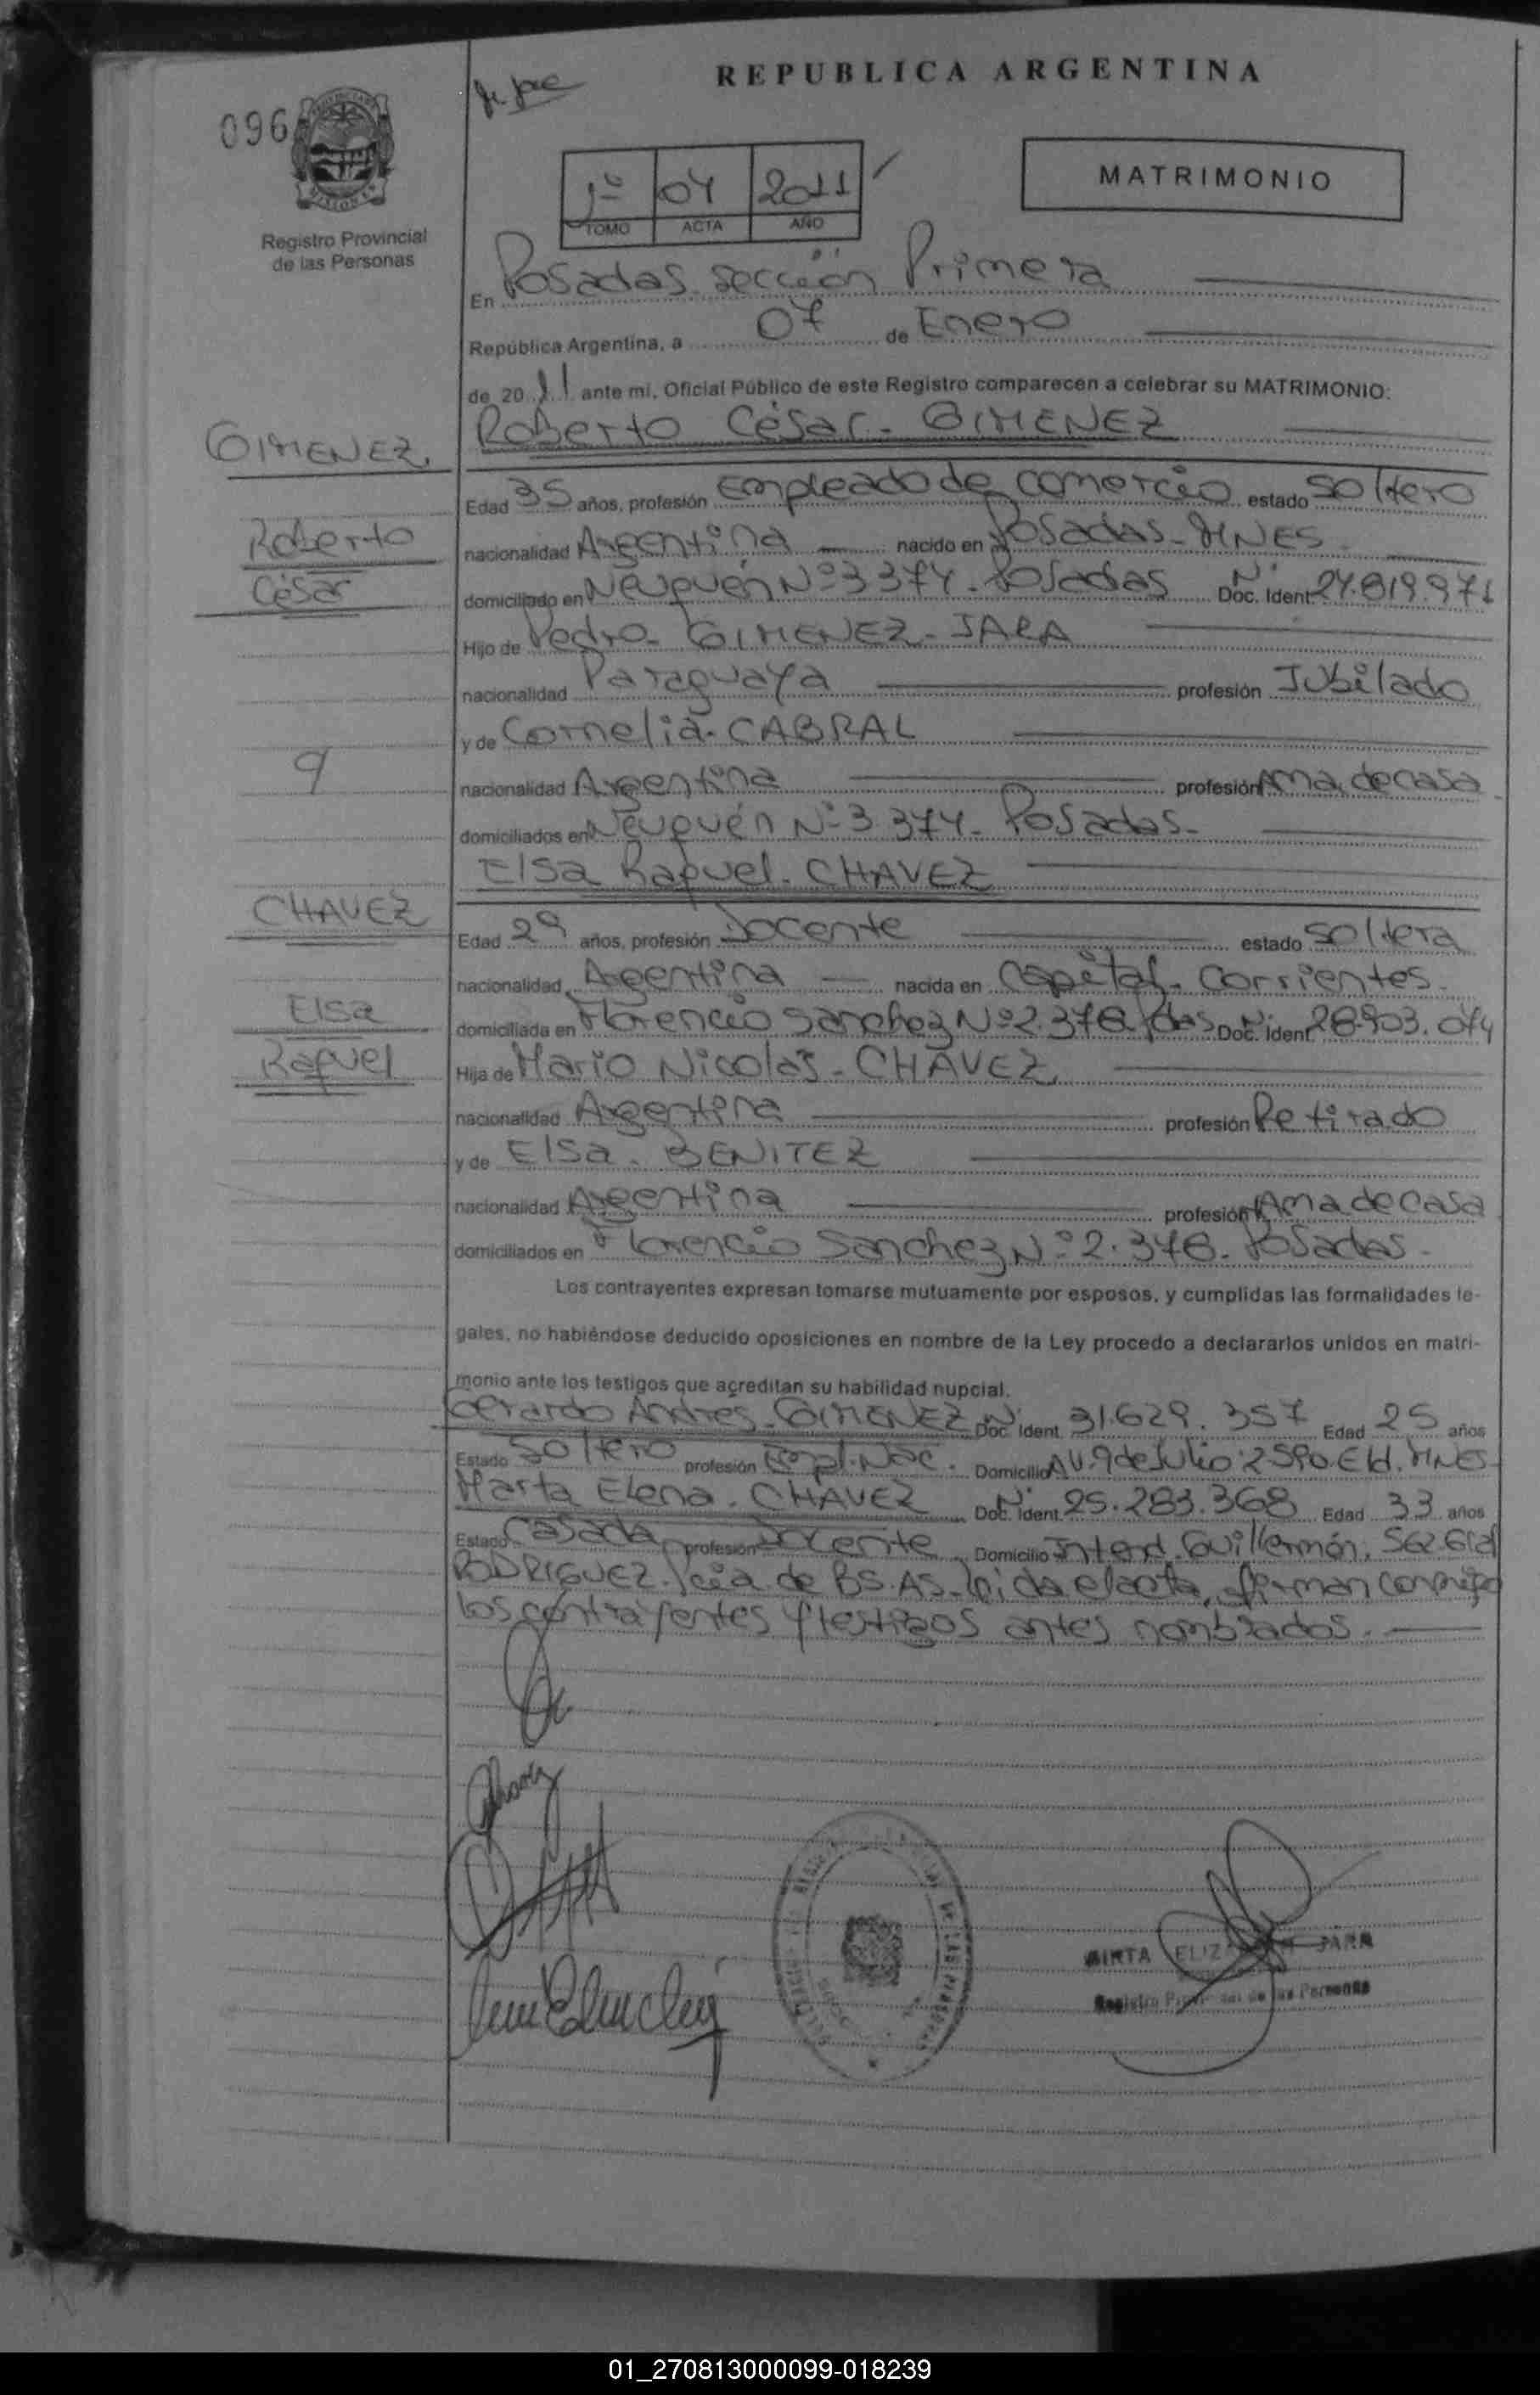 REPUBLICA ARGENTINA
096
Registro Provincial
de las Personas
1º 04 2011
TOMO ACTA AÑO
MATRIMONIO
En Posadas sección Primera
República Argentina, a 07 de Enero
de 2011 ante mi, Oficial Público de este Registro comparecen a celebrar su MATRIMONIO:
GIMENEZ
Roberto César. GIMENEZ
Roberto
César
Edad 35 años, profesión Empleado de comercio estado soltero
nacionalidad Argentina nacido en Posadas-MNES
domiciliado en Neuquén Nº3374. Posadas Doc. Ident. Nº 24.819.971
Hijo de Pedro GIMENEZ-JARA
nacionalidad Paraguaya profesión Jubilado
y de Cornelia. CABRAL
nacionalidad Argentina profesión Ama de casa
domiciliados en Neuquén Nº3.374. Posadas.
y
Elsa Raquel. CHAVEZ
CHAVEZ
Elsa
Raquel
Edad 29 años, profesión Docente estado soltera
nacionalidad Argentina nacida en Capital. Corrientes.
domiciliada en Florencio Sanchez Nº2.376 Pdas Doc. Ident. Nº 28.903.074
Hija de Mario Nicolas. CHAVEZ
nacionalidad Argentina profesión Retirado
y de Elsa. BENITEZ
nacionalidad Argentina profesión Ama de casa
domiciliados en Florencio Sanchez Nº2.376. Posadas.
Los contrayentes expresan tomarse mutuamente por esposos, y cumplidas las formalidades le-
gales, no habiéndose deducido oposiciones en nombre de la Ley procedo a declararlos unidos en matri-
monio ante los testigos que acreditan su habilidad nupcial.
Gerardo Andres. GIMENEZ Doc. Ident. Nº 31.629.357 Edad 25 años
Estado Soltero profesión Empl. Nac. Domicilio AV. 9 de Julio 2590 Eld. MNES
Marta Elena. CHAVEZ Doc. Ident. Nº 25.283.368 Edad 33 años
Estado Casada profesión Docente Domicilio Intend. Guillermón. 562 Gral
RODRIGUEZ. Pcia de BS.AS. leida el acta, firman conmigo
los contrayentes y testigos antes nombrados.
Chavez
MIRTA JARA
Registro Provincial de las Personas
01_270813000099-018239